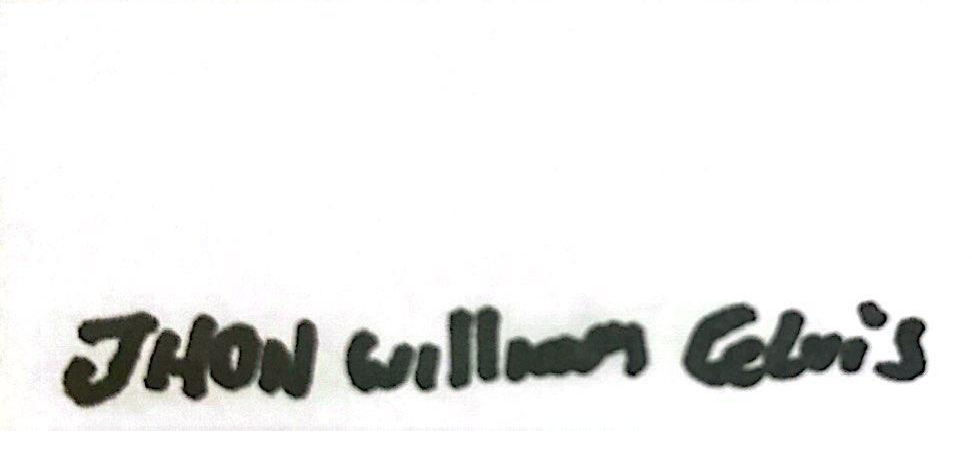 JHON William Gelvis